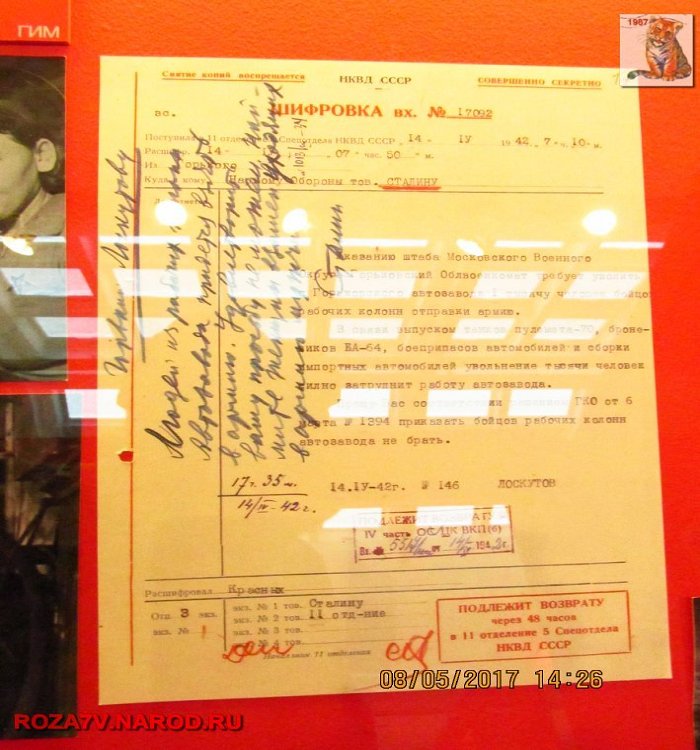 ГИМ
1987
Снятие копий воспрещается
НКВД СССР
СОВЕРШЕННО СЕКРЕТНО
вс.
ШИФРОВКА вх. № 17092
Поступила 11 отделение Спецотдела НКВД СССР „14 IV 1942, 7 ч. 10 м.
Расшифр. 14 07 час. 50 м.
Из Горького
Куда, кому Обороны тов. СТАЛИНУ
Горький Лоскутову
Людей из рабочих колонн
Автозавода придется
в армию. Удовлетворить
вашу просьбу не можем.
Сталин
указанию штаба Московского Военного
Округа Горьковский Облвоенкомат требует уволить
Горьковского автозавода 1 тысячу человек бойцов
рабочих колонн отправки армию.
В связи выпуском танков пулемета-70, броне-
виков БА-64, боеприпасов автомобилей и сборки
импортных автомобилей увольнение тысячи человек
сильно затруднит работу автозавода.
Прошу Вас соответствии решением ГКО от 6
марта № 1394 приказать бойцов рабочих колонн
автозавода не брать.
17 ч. 35 м.
14/IV-42 г.
14.IУ-42г. № 146 ЛОСКУТОВ
ПОДЛЕЖИТ ВОЗВРАТУ
IV часть ОС ЦК ВКП(б)
Вх. № от 1942 г.
Расшифровал Красных
Отп. 3 экз.
экз. №
экз. № 1 тов. Сталину
экз. № 2 тов. 11 отд-ние
экз. № 3 тов.
№ 4 тов.
Начальник 11 отделения
ПОДЛЕЖИТ ВОЗВРАТУ
через 48 часов
в 11 отделение 5 Спецотдела
НКВД СССР
08/05/2017 14:26
ROZA7V.NAROD.RU